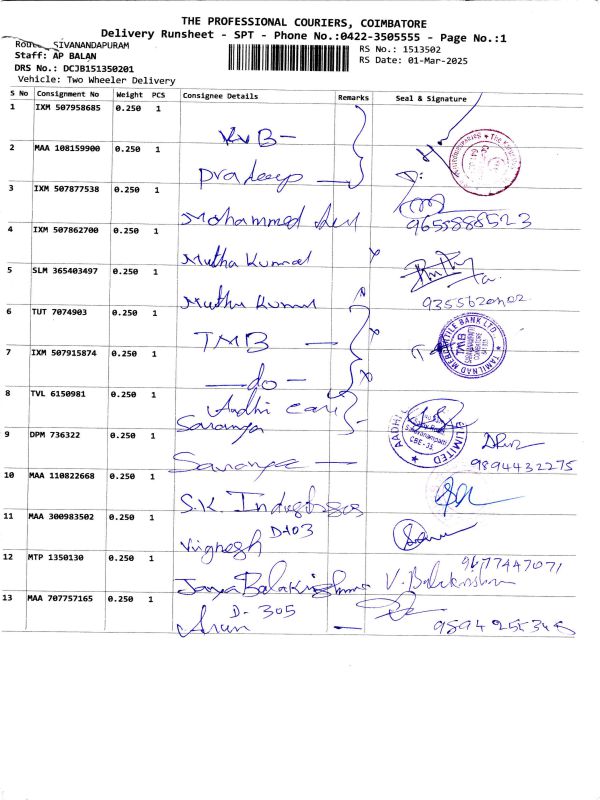 THE PROFESSIONAL COURIERS, COIMBATORE
Delivery Runsheet - SPT - Phone No.:0422-3505555 - Page No.:1
Route SIVANANDAPURAM
RS No.: 1513502
Staff: AP BALAN
RS Date: 01-Mar-2025
DRS No.: DCJB151350201
Vehicle: Two Wheeler Delivery
S No Consignment No Weight PCS Consignee Details Remarks Seal & Signature
1 IXM 507958685 0.250 1 KVB -
2 MAA 108159900 0.250 1 Pradeep
3 IXM 507877538 0.250 1 Mohammed 9655888523
4 IXM 507862700 0.250 1 Mutha Kumar
5 SLM 365403497 0.250 1 Muthu Kumar
6 TUT 7074903 0.250 1 TMB -
TAMILNAD MERCANTILE BANK LTD
TMB
7 IXM 507915874 0.250 1 - do -
8 TVL 6150981 0.250 1 Aadhi care
Saranya
AADHI LIMITED
CBE - 35
9 DPM 736322 0.250 1 Saranya - 9894432275
10 MAA 110822668 0.250 1 S.K. Industries
11 MAA 300983502 0.250 1 Vignesh D-103
12 MTP 1350130 0.250 1 Jaya Balakrishna V. Balakrishna 9677447071
13 MAA 707757165 0.250 1 Arun D-305 -